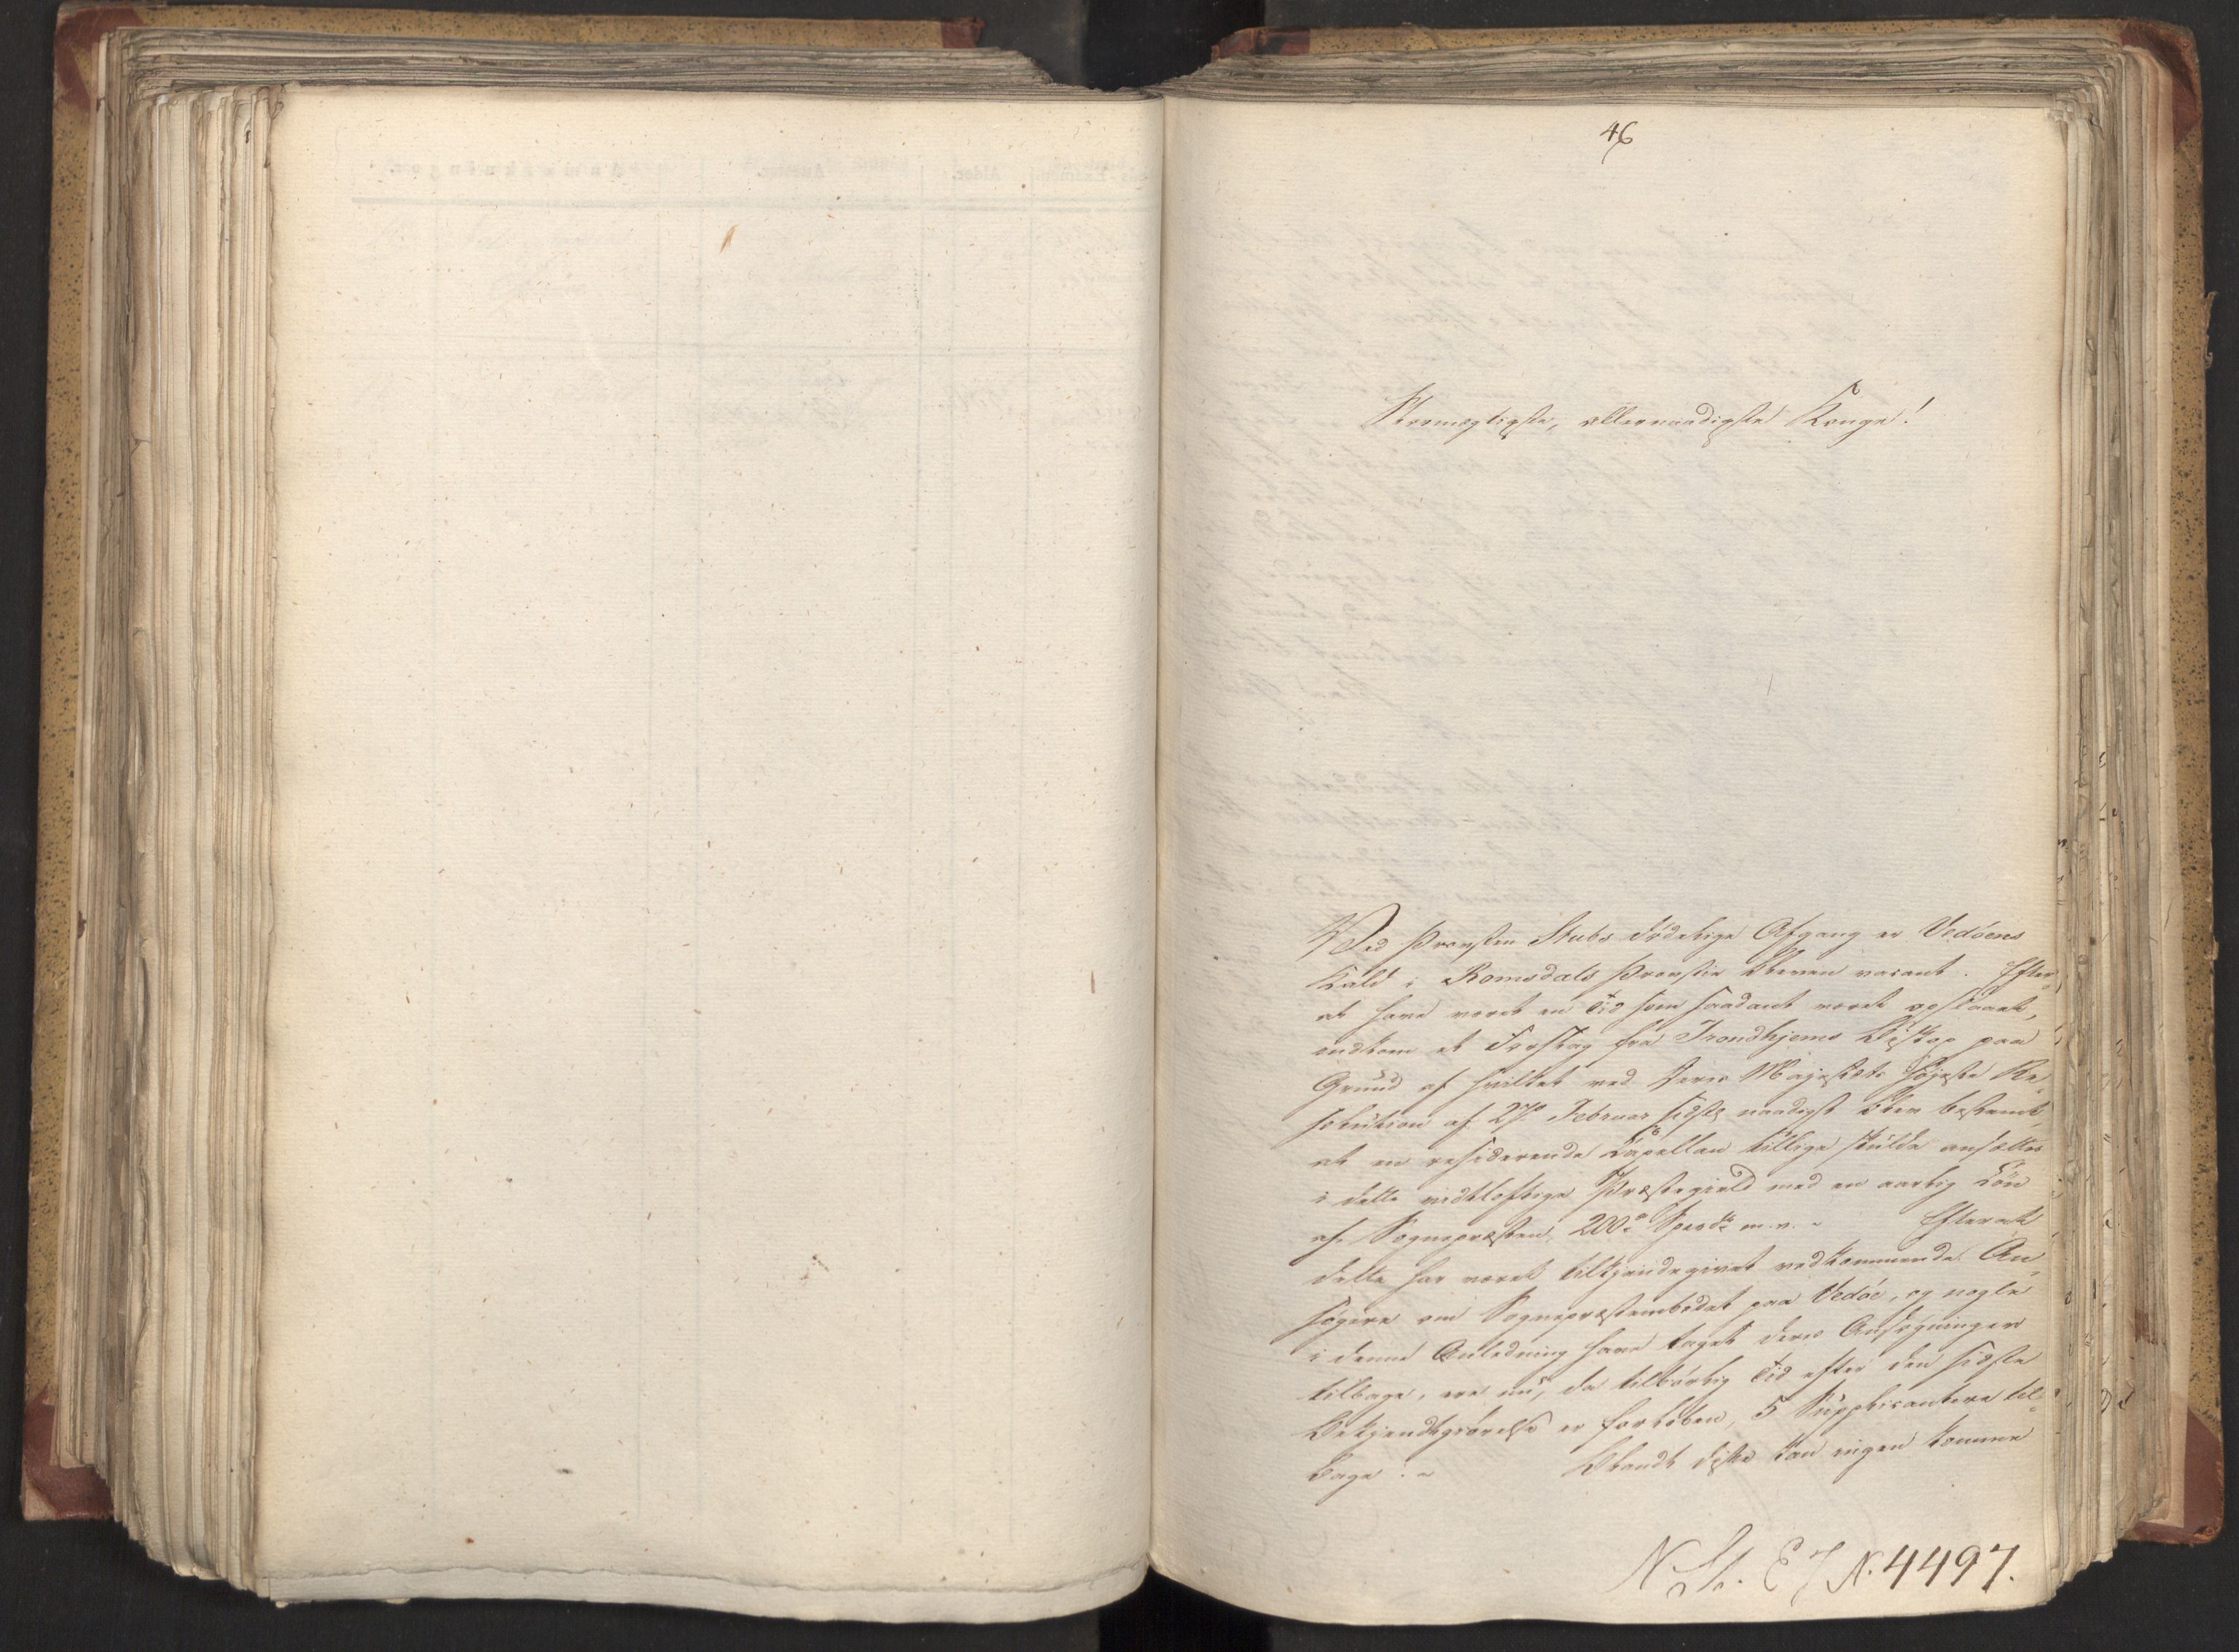 46
Stormægtigste, allernaadigste Konge!
Ved Provsten Stubs dödelige Afgang er Vedöens
Kald i Romsdals Provstie bleven vacant. Efter
at have været en Tid som saadant været opslaaet,
indkom et Forslag fra Trondhjems Biskop paa
Grund af hvilket ved Deres Majestæts höjeste Re-
solution af 27de Februar sidste naadigst blev bestemt,
at en residerende Capellan tillige skulde ansættes
i dette vidtløftige Præstegield med en aarlig Lön
af Sognepræsten, 200 Specd. m. v. Efterat
dette har været tilkjendegivet vedkommende An-
søgere om Sognepræstembedet paa Vedöe, og nogle
i denne Anledning have taget deres Ansøgninger
tilbage, ere nu, da tilbørlig Tid efter den sidste
Bekjendtgiørelse er forløben, 5 Supplicantere til-
bage. Blandt disse kan ingen komme
N. St. E J N. 4497.